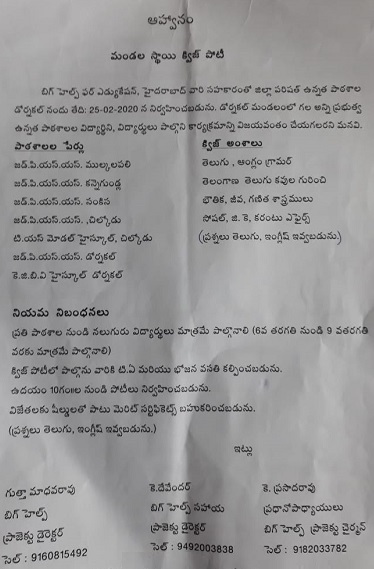 ఆహ్వానం
మండల స్థాయి క్విజ్ పోటీ
బిగ్ హెల్ప్ ఫర్ ఎడ్యుకేషన్, హైదరాబాద్ వారి సహకారంతో జిల్లా పరిషత్ ఉన్నత పాఠశాల
డోర్నకల్ నందు తేది: 25-02-2020 న నిర్వహించబడును. డోర్నకల్ మండలంలో గల అన్ని ప్రభుత్వ
ఉన్నత పాఠశాలల విద్యార్థిని, విద్యార్థులు పాల్గొని కార్యక్రమాన్ని విజయవంతం చేయగలరని మనవి.
పాఠశాలల పేర్లు
జడ్.పి.యస్.యస్. ముల్కలపల్లి
జడ్.పి.యస్.యస్. కన్నెగుండ్ల
జడ్.పి.యస్.యస్. సంకిస
జడ్.పి.యస్.యస్. ,చిల్కోడు
టి.యస్ మోడల్ హైస్కూల్, చిల్కోడు
జడ్.పి.యస్.యస్. డోర్నకల్
కె.జి.బి.వి హైస్కూల్ డోర్నకల్
క్విజ్ అంశాలు
తెలుగు , ఆంగ్లం గ్రామర్
తెలంగాణ తెలుగు కవుల గురించి
భౌతిక, జీవ, గణిత శాస్త్రములు
సోషల్, జి. కె, కరంటు ఎఫైర్స్
(ప్రశ్నలు తెలుగు, ఇంగ్లీష్ ఇవ్వబడును.)
నియమ నిబంధనలు
ప్రతి పాఠశాల నుండి నలుగురు విద్యార్థులు మాత్రమే పాల్గొనాలి (6వ తరగతి నుండి 9 వతరగతి
వరకు మాత్రమే పాల్గొనాలి)
క్విజ్ పోటీలో పాల్గొను వారికి టి.ఏ మరియు భోజన వసతి కల్పించబడును.
ఉదయం 10గంll నుండి పోటీలు నిర్వహించబడును.
విజేతలకు షీల్డులతో పాటు మెరిట్ సర్టిఫికెట్స్ బహుకరించబడును.
(ప్రశ్నలు తెలుగు, ఇంగ్లీష్ ఇవ్వబడును.)
ఇట్లు
గుత్తా మాధవరావు
బిగ్ హెల్ప్
ప్రాజెక్టు డైరెక్టర్
సెల్ : 9160815492
కె.దేవేందర్
బిగ్ హెల్ప్ సహాయ
ప్రాజెక్టు డైరెక్టర్
సెల్ : 9492003838
కె. ప్రసాదరావు
ప్రధానోపాధ్యాయులు
బిగ్ హెల్ప్ ప్రాజెక్టు చైర్మన్
సెల్ : 9182033782